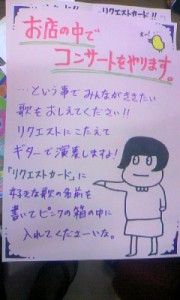 リクエストカード!!
お店の中で
コンサートをやります。
…という事でみんながききたい
歌をおしえてください!!
リクエストにこたえて
ギターで演奏しますよ!
「リクエストカード」に
好きな歌の名前を
書いてピンクの箱の中に
入れてくださーいな。